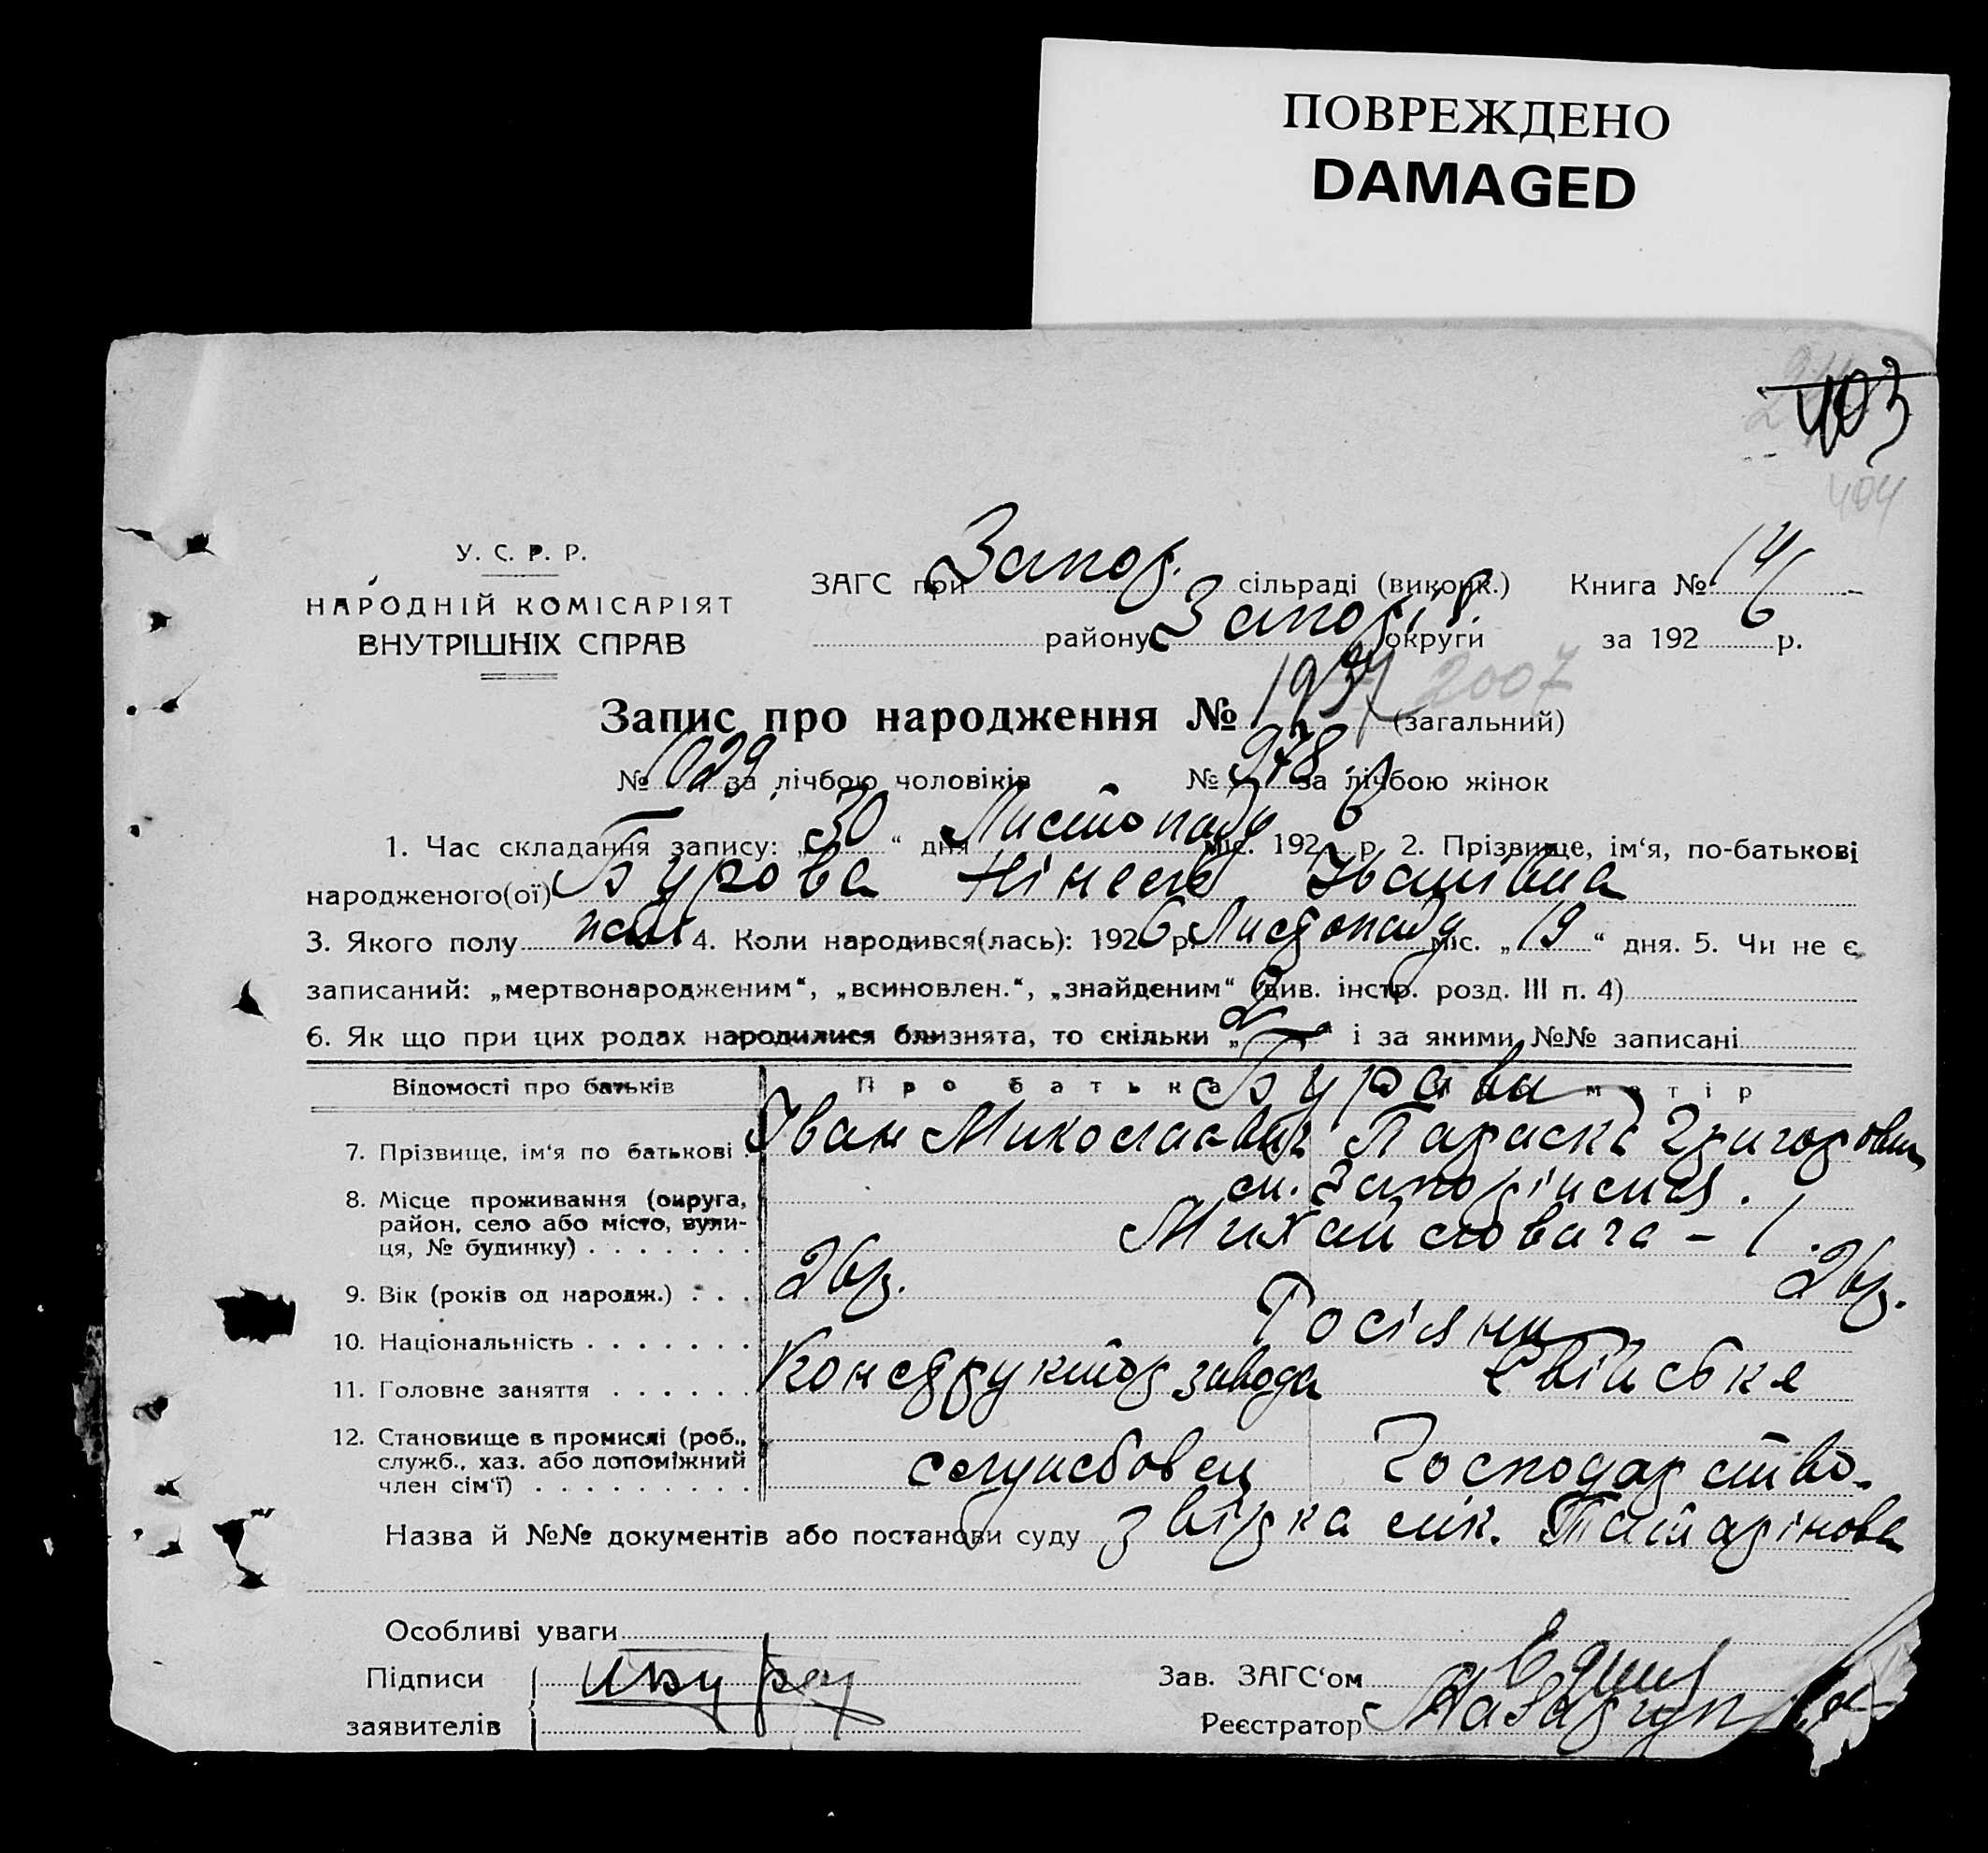 ПОВРЕЖДЕНО
DAMAGED
403
404
У. С. Р. Р.
НАРОДНІЙ КОМІСАРІЯТ
ВНУТРІШНІХ СПРАВ
ЗАГС при Запор. сільраді (виконк.) Книга № 14
району Запоріз. округи за 1926 р.
Запис про народження № (загальний)
2007
№ 1029 за лічбою чоловіків № 978 за лічбою жінок
1. Час складання запису: „30“ дня Листопада міс. 1926 р. 2. Прізвище, ім‘я, по-батькові
народженого(ої) Бурова Нінель Іванівна
3. Якого полу жін 4. Коли народився(лась): 1926 р. Листопаду міс. „19“ дня. 5. Чи не є
записаний: „мертвонародженим“, „всиновлен.“, „знайденим“ (див. інстр. розд. III п. 4)
6. Як що при цих родах народилися близнята, то скільки „ “ і за якими №№ записані
Відомості про батьків Про батька матір
Бурови
7. Прізвище, ім‘я по батькові Іван Миколаєвич Параска Григоровна
8. Місце проживання (округа, район, село або місто, вулиця, № будинку) м. Запоріжжя.
Михайловича - 1.
9. Вік (років од народж.) 26р. 26р.
10. Національність Росіяни
11. Головне заняття Конструктор завода Свійське
12. Становище в промислі (роб., служб., хаз. або допоміжний член сім‘ї) службовец Господарство.
Назва й №№ документів або постанови суду звірка лік. Татарінова
Особливі уваги
Підписи
заявителів
Зав. ЗАГС‘ом
Реєстратор